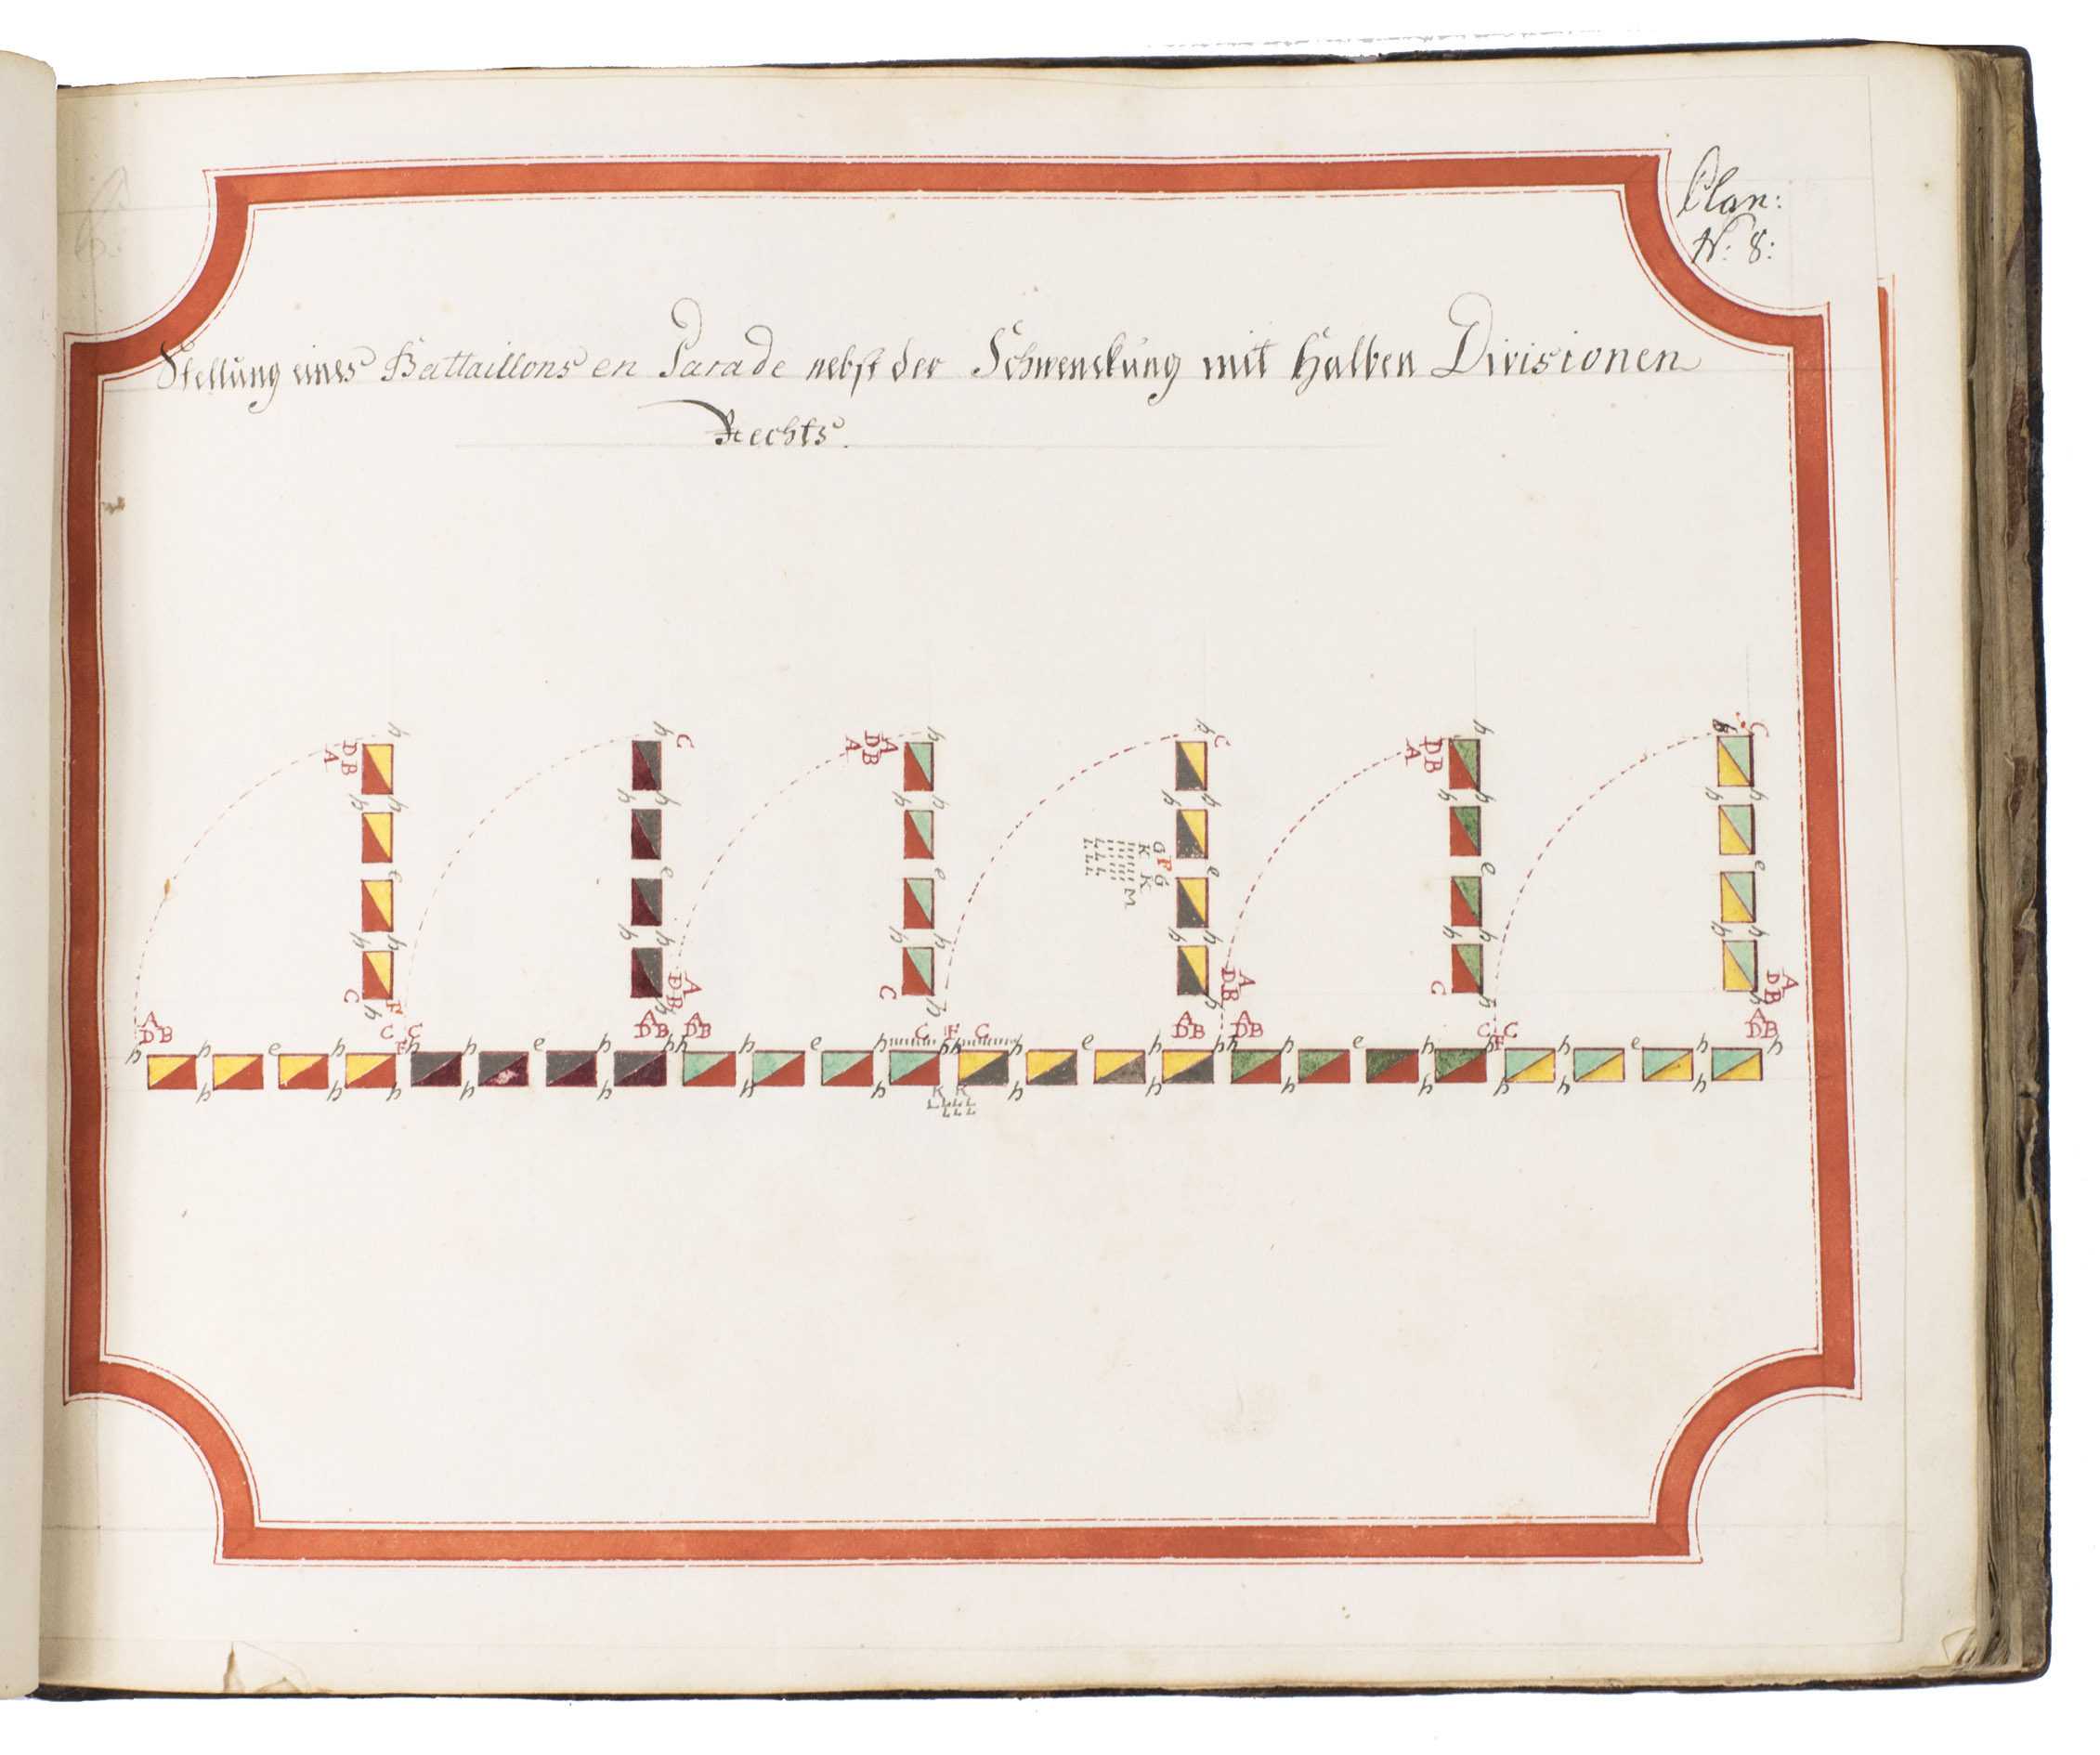 Plan:
N: 8:
Stellung eines Battaillons en Parade nebst der Schwenckung mit Halben Divisionen
Rechts.
h h C h h C h h C
D B A D A B A D B A
h h h h h h h h h h h h
G F G K K M L L L L L L
e e e e e e
h h h h h h h h h h h h
C F h D A B h C h D A B h C h D A B h
A D B C C A D B A D B C F C A D B A D B C C A D B
h h e h F h h e h h h h e h h h h e h h h h e h F h h e h h
h h h h h h h h h h h h h h
K K
L L L L
L L L